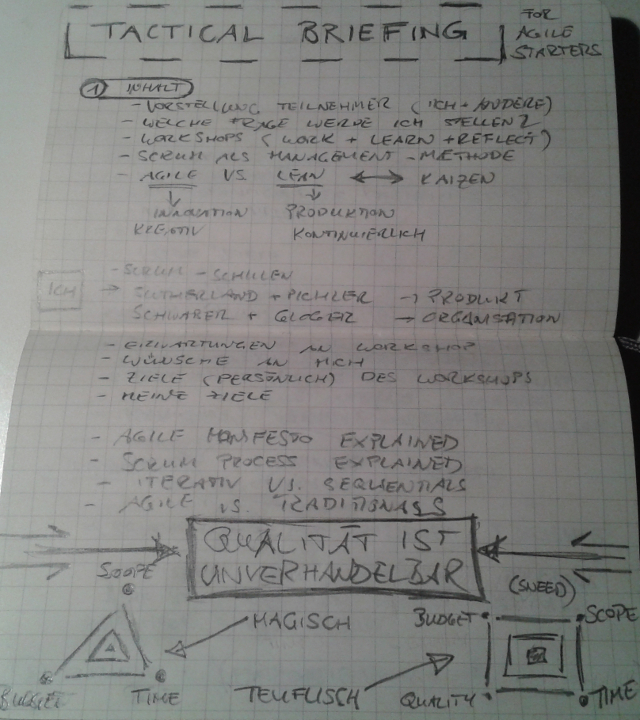 TACTICAL BRIEFING
FOR
AGILE
STARTERS
1 INHALT
- VORSTELLUNG TEILNEHMER (ICH + ANDERE)
- WELCHE FRAGE WERDE ICH STELLEN?
- WORKSHOPS (WORK + LEARN + REFLECT)
- SCRUM ALS MANAGEMENT-METHODE
- AGILE VS LEAN ↔ KAIZEN
INNOVATION PRODUKTION
KREATIV KONTINUIERLICH
- SCRUM - SCHULEN
ICH → SUTHERLAND + PICHLER → PRODUKT
SCHWABER + GLOGER → ORGANISATION
- ERWARTUNGEN AN WORKSHOP
- WÜNSCHE AN MICH
- ZIELE (PERSÖNLICH) DES WORKSHOPS
- MEINE ZIELE
- AGILE MANIFESTO EXPLAINED
- SCRUM PROCESS EXPLAINED
- ITERATIV VS. SEQUENTIALS
- AGILE VS. TRADITIONALS
QUALITÄT IST
UNVERHANDELBAR
SCOPE
(SNEED)
MAGISCH
BUDGET SCOPE
BUDGET TIME
TEUFLISCH
QUALITY TIME